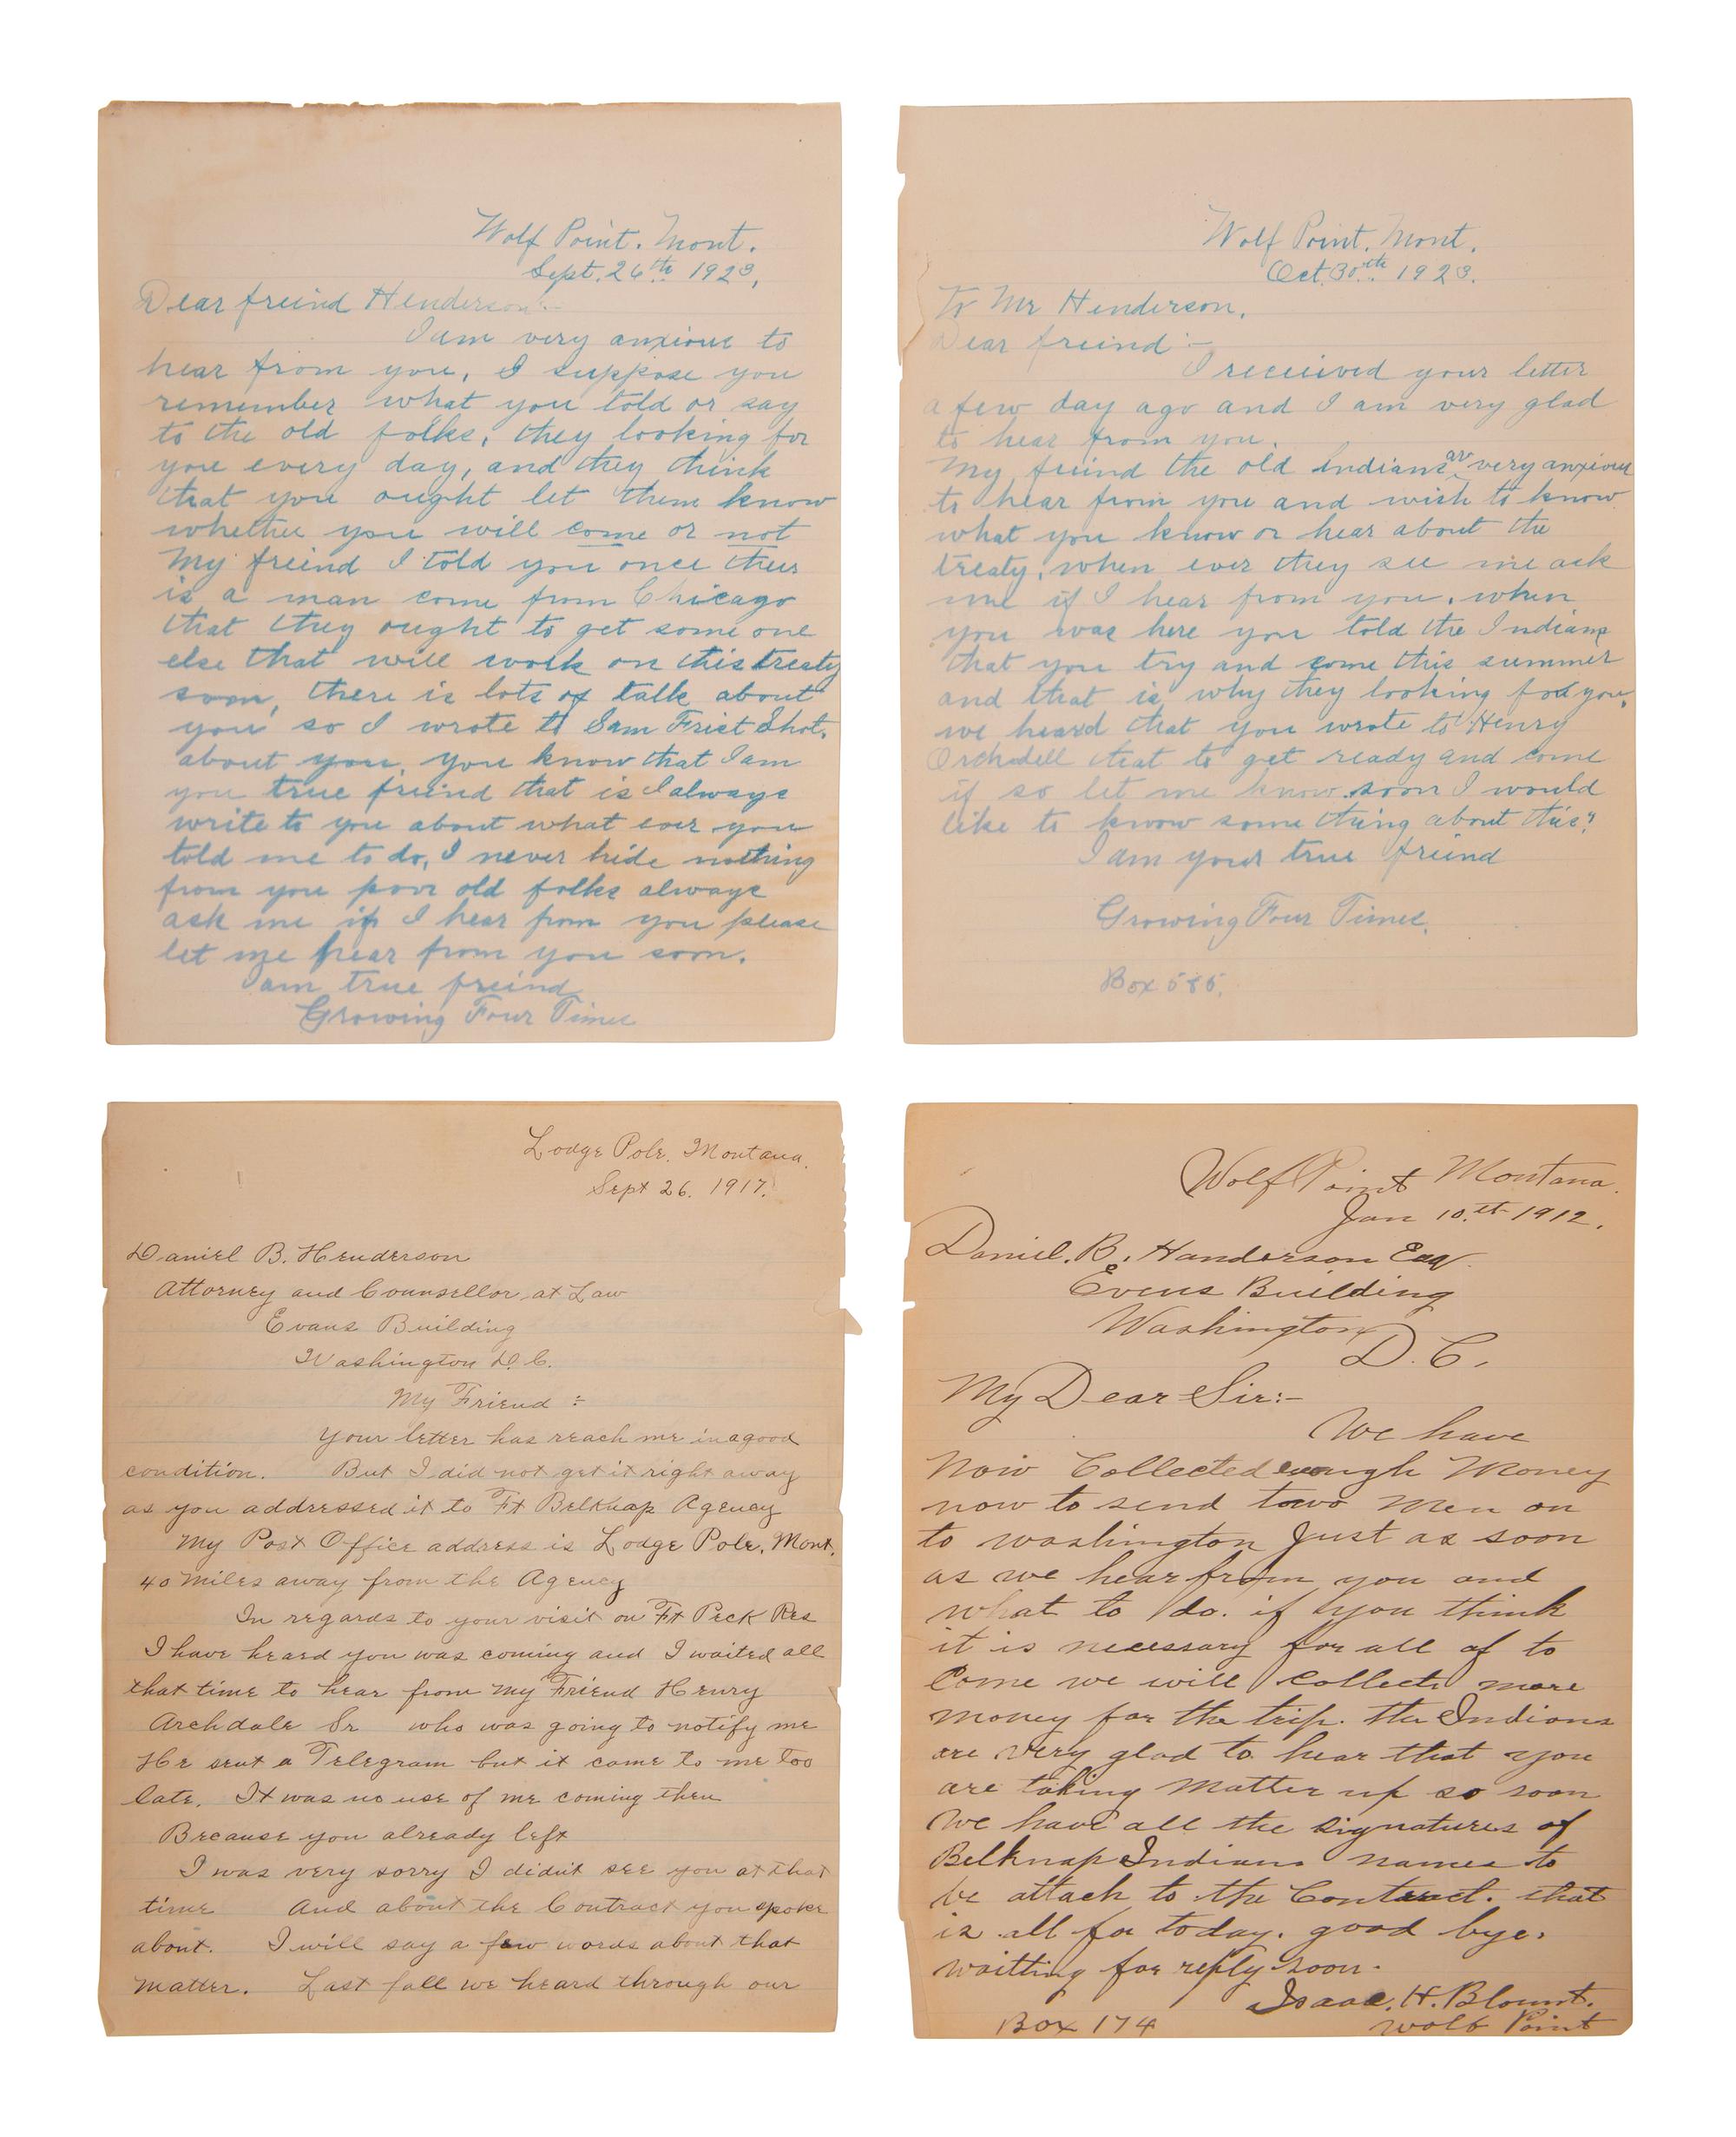 Wolf Point. Mont.
Sept. 26th 1923,
Dear freind Henderson:-
I am very anxious to
hear from you, I suppose you
remember what you told or say
to the old folks, they looking for
you every day, and they think
that you ought let them know
whether you will come or not
My freind I told you once ther
is a man come from Chicago
that they ought to get some one
else that will work on this treaty
soon, there is lots of talk about
you so I wrote to Sam Frist Shot.
about you, you know that I am
you true freind that is I always
write to you about what ever you
told me to do, I never hide nothing
from you poor old folks always
ask me if I hear from you please
let me hear from you soon.
I am true freind
Growing Four Times
Wolf Point. Mont.
Oct. 30th. 1923.
To Mr Henderson,
Dear freind:-
I received your letter
a few day ago and I am very glad
to hear from you.
My freind the old Indians ar very anxious
to hear from you and wish to know
what you know or hear about the
treaty, when ever they see me ask
me if I hear from you, when
you was here you told the Indians
that you try and come this summer
and that is why they looking for you,
we heard that you wrote to Henry
Orchdell that to get ready and come
if so let me know soon I would
like to know some thing about this?
I am your true freind
Growing Four Times.
Box 585.
Lodge Pole, Montana.
Sept 26. 1917.
Daniel B. Henderson
Attorney and Counsellor at Law
Evans Building
Washington D.C.
My Friend :-
Your letter has reach me in a good
condition. But I did not get it right away
as you addressed it to Ft Belknap Agency
My Post Office address is Lodge Pole, Mont.
40 miles away from the Agency
In regards to your visit on Ft Peck Res
I have heard you was coming and I waited all
that time to hear from my Friend Henry
Archdale Sr who was going to notify me
He sent a Telegram but it came to me too
late. It was no use of me coming then
Because you already left
I was very sorry I didn't see you at that
time And about the Contract you spoke
about. I will say a few words about that
matter. Last fall we heard through our
Wolf Point Montana.
Jan 10.th 1912.
Daniel. B. Handerson Esq.
Evens Building
Washington
D.C.
My Dear Sir:-
We have
Now Collected enough Money
now to send towo Men on
to washington Just as soon
as we hear from you and
what to do. if you think
it is necessary for all of to
Come we will collect more
money for the trip. the Indians
are very glad to hear that you
are taking Matter up so soon
We have all the signatures of
Belknap Indians names to
be attach to the Contract. that
is all for today. good bye.
waitting for reply soon.
Isaac. H. Blount.
Box 174 Wolf Point